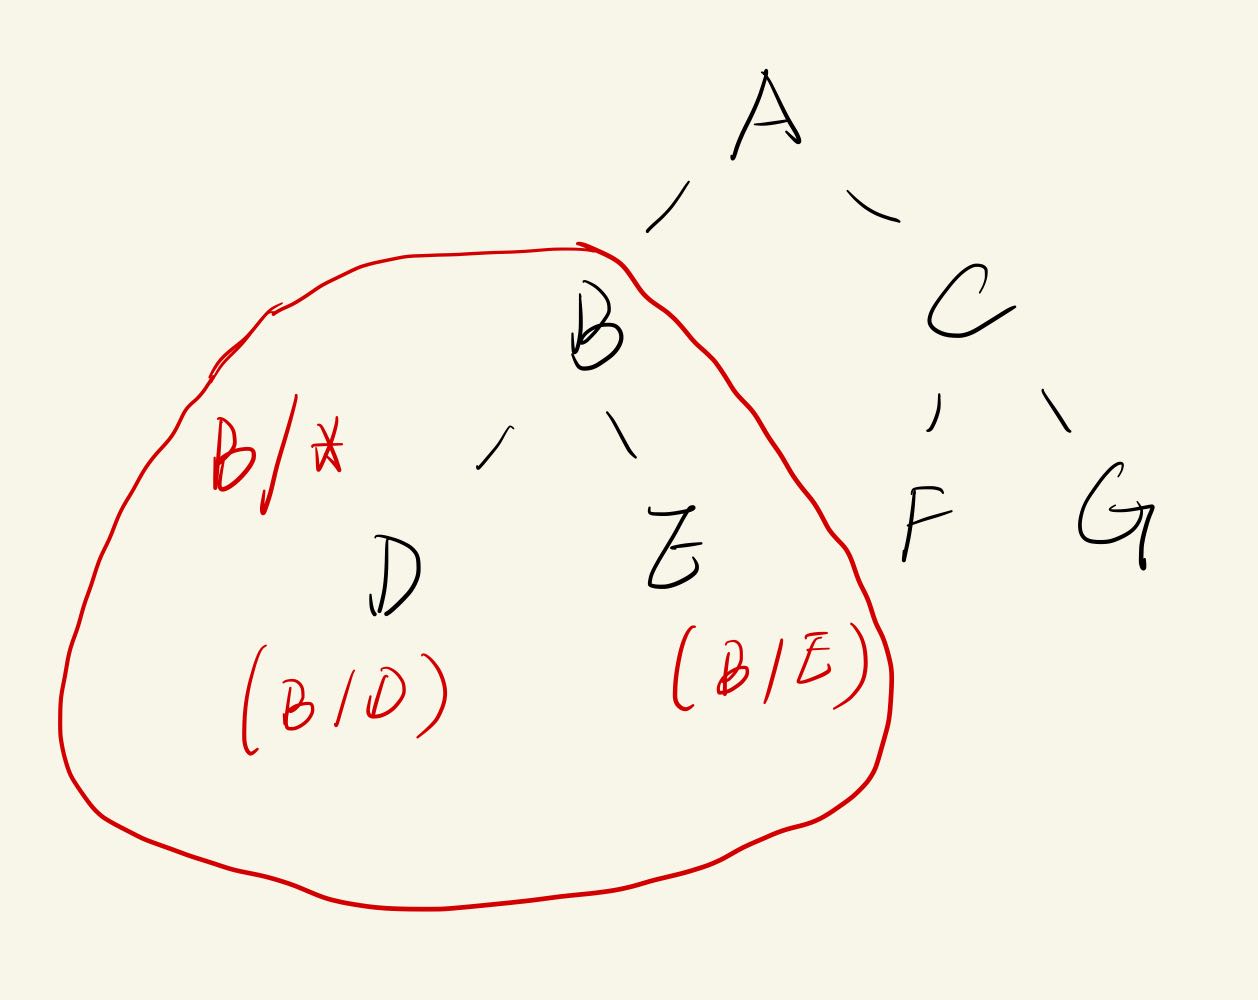 A
B C
B/*
D E F G
(B/D) (B/E)